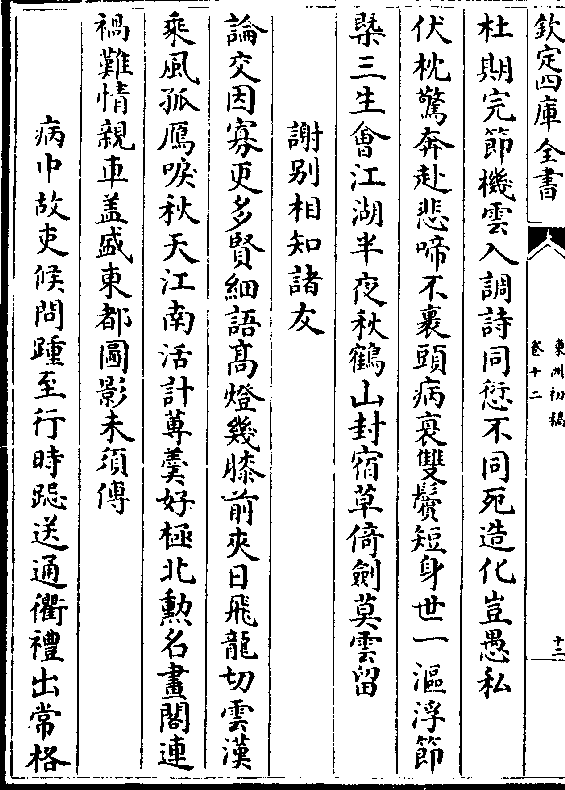 欽定四庫全書
東洲初稿
卷十二
十二
杜期完節機雲入調詩同愆不同死造化豈愚私
伏枕驚奔赴悲啼不裹頭病衰雙鬢短身世一漚浮節
槩三生會江湖半夜秋鶴山封宿草倚劍莫雲留
謝别相知諸友
論交因寡更多賢細語髙燈幾膝前夾日飛龍切雲漢
乘風孤鴈唳秋天江南活計蓴羮好極北勲名畫閣連
禍難情親車盖盛東都圖影未須傳
病中故吏候問踵至行時跽送通衢禮出常格